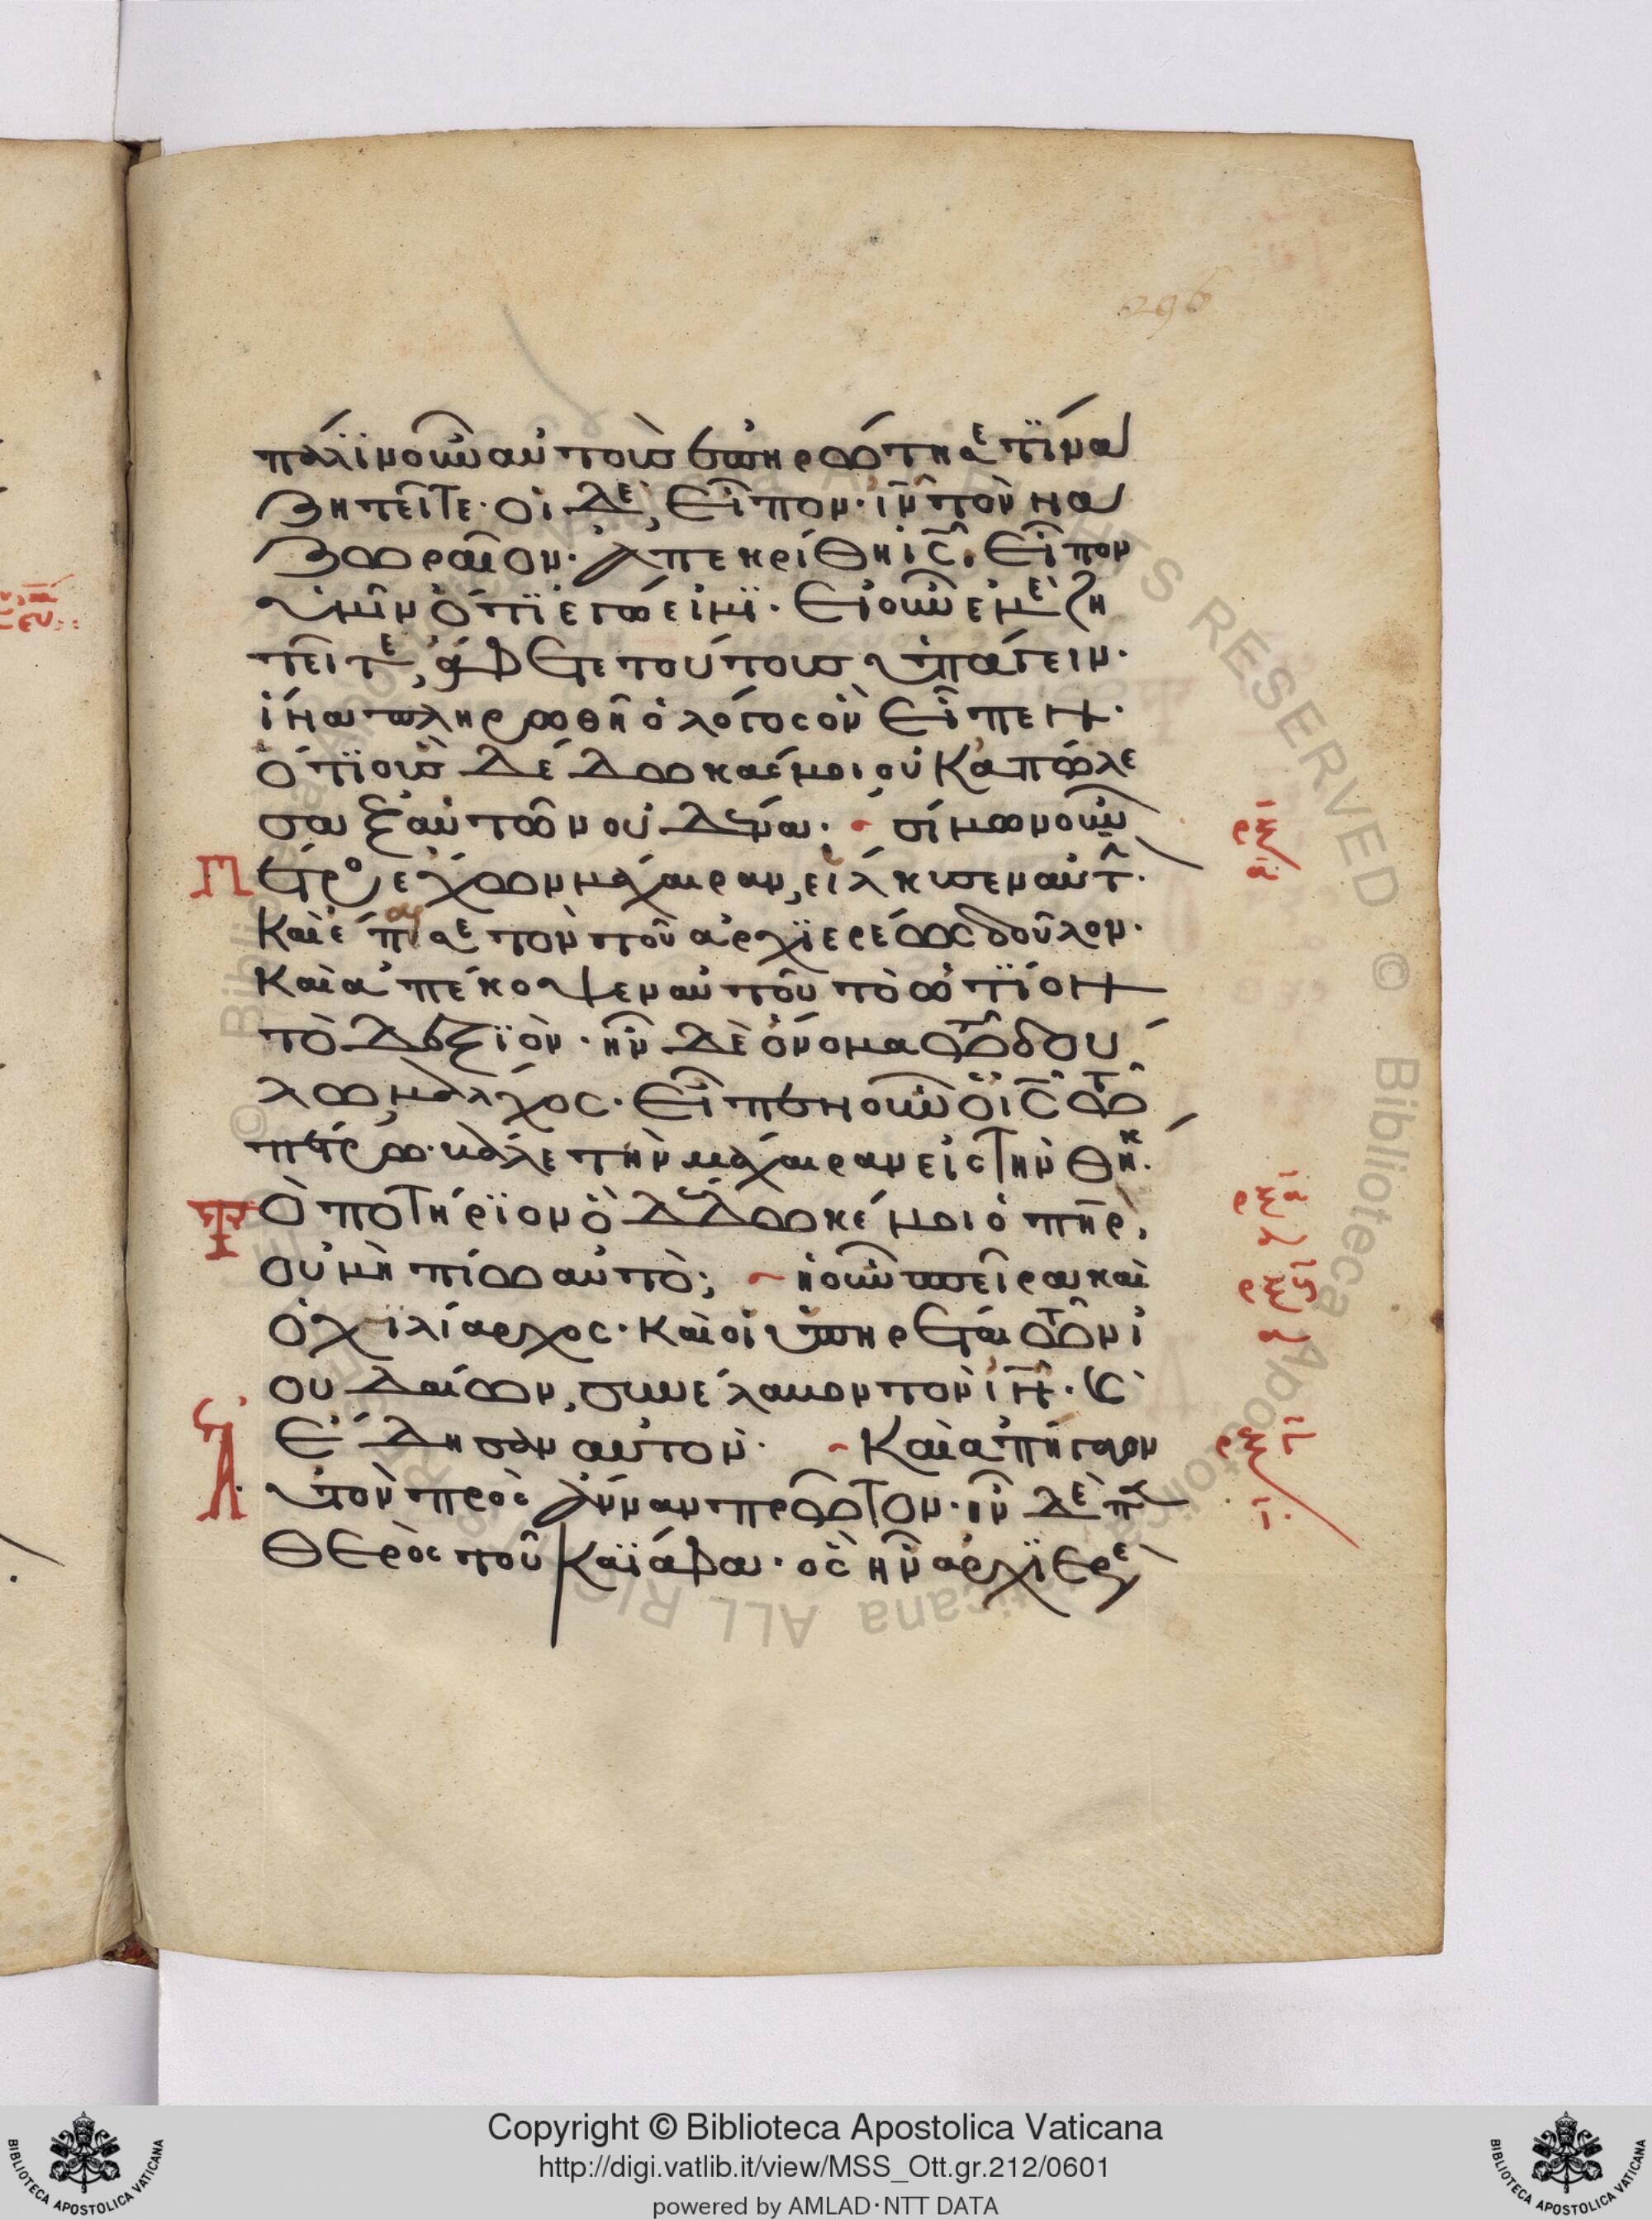 296
πάλιν οὖν αὐτοὺς ἐπηρώτησε τίνα
ζητεῖτε· οἱ δὲ, εἶπον· ιν τὸν να
ζωραῖον· ἀπεκρίθη ις, εἶπον
ὑμῖν ὅτι ἐγώ εἰμι· εἰ οὖν ἐμὲ ζη
τεῖτε, ἄφετε τούτους ὑπάγειν·
ἵνα πληρωθῆ ὁ λόγος ὃν εἶπεν·
ὅτι οὓς δέδωκάς μοι οὐκ ἀπώλε
σα ἐξ αὐτῶν οὐδένα· σίμων οὖν
Πέτρος ἔχων μάχαιραν, εἵλκυσεν αὐτ·
καὶ ἔπαισε τὸν τοῦ ἀρχιερέως δοῦλον·
καὶ ἀπέκοψεν αὐτοῦ τὸ ὠτίον
τὸ δεξιόν· ἦν δὲ ὄνομα τῶ δού
λω, μάλχος· εἶπεν οὖν ὁ ις τῶ
πέτρω· βάλε τὴν μάχαιραν εἰς τὴν θήκ·
Τὸ ποτήριον ὃ δέδωκέ μοι ὁ πηρ,
οὐ μὴ πίω αὐτό; ἡ οὖν σπεῖρα καὶ
ὁ χιλίαρχος· καὶ οἱ ὑπηρέται τῶν ἰ
ουδαίων, συνέλαβον τὸν ιν· καὶ
ἔδησαν αὐτόν· καὶ ἀπήγαγον
Αὐτὸν πρὸς ἄνναν πρῶτον· ἦν δὲ πεν
θερὸς τοῦ καϊάφα· ὃς ἦν ἀρχιερεὺ
Copyright © Biblioteca Apostolica Vaticana
http://digi.vatlib.it/view/MSS_Ott.gr.212/0601
powered by AMLAD·NTT DATA
BIBLIOTECA APOSTOLICA VATICANA
BIBLIOTECA APOSTOLICA VATICANA